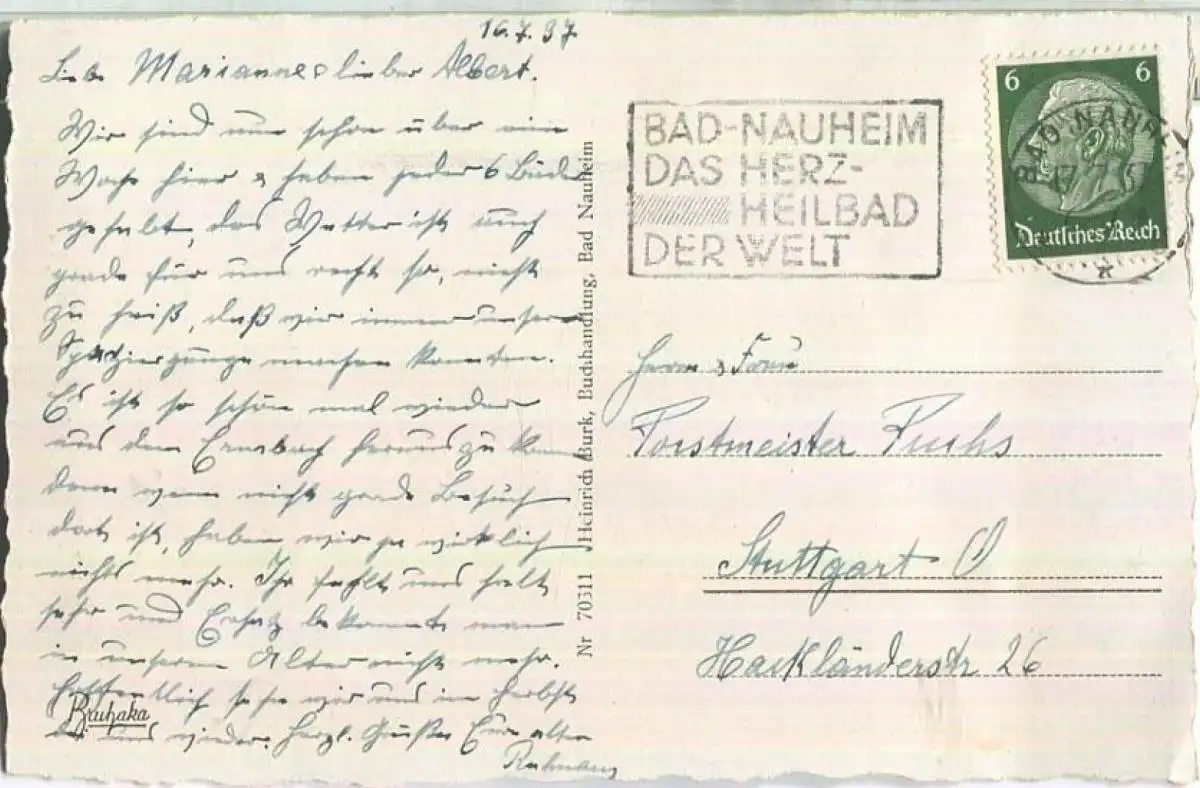 16.7.37
Liebe Marianne, lieber Albert.
Wir sind nun schon über eine
Woche hier & haben jeder 6 Bäder
gehabt, das Wetter ist auch
grade für uns recht so, nicht
zu heiß, daß wir immer unsere
Spaziergänge machen konnten.
Es ist so schön mal wieder
aus dem Ernsbach herauszukommen
denn wenn nicht grade Besuch
dort ist, haben wir ja wirklich
nichts mehr. Ihr fehlt uns halt
sehr und Ersatz bekommt man
in unserem Alter nicht mehr.
Hoffentlich sehen wir uns im Herbst
bei uns wieder. Herzl. Grüße Eure alten
Bruhaka
Nr 70311 Heinrich Burk, Buchhandlung, Bad Nauheim
BAD-NAUHEIM
DAS HERZ-
HEILBAD
DER WELT
6 6
Deutsches Reich
BAD NAUHEIM
Herrn & Frau
Forstmeister Fuchs
Stuttgart O
Hackländerstr 26